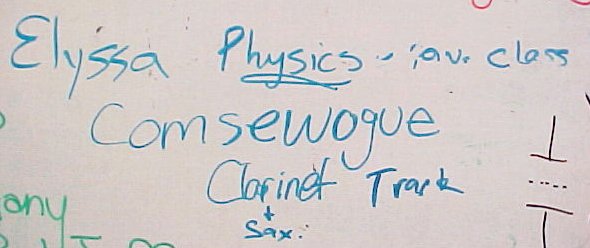 Elyssa Physics - fav. class
Comsewogue
Clarinet Track
+
Sax.
any